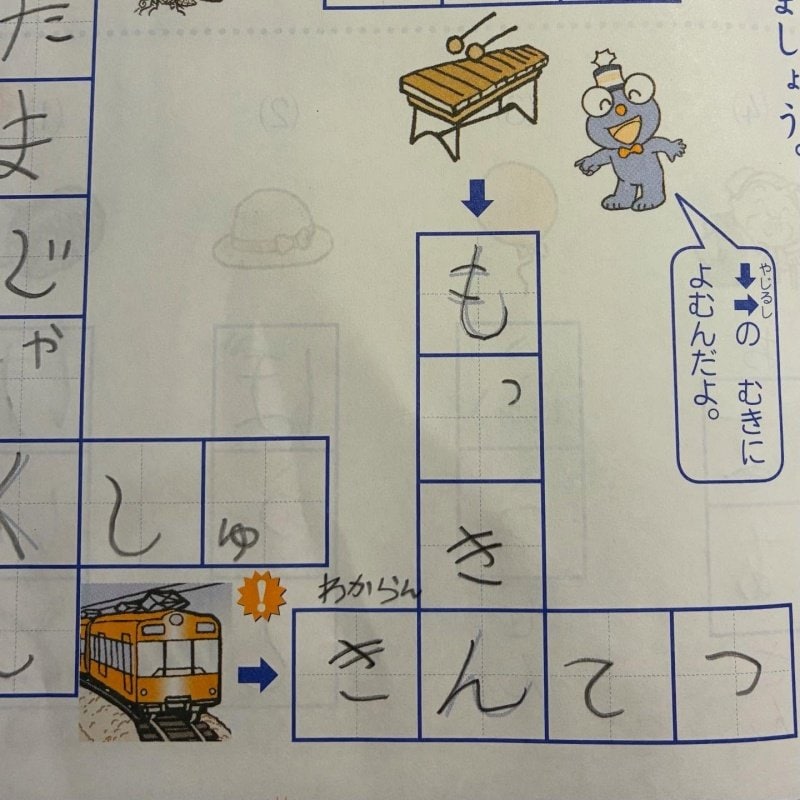 ましょう。
やじるし
⬇➡の むきに
よむんだよ。
もっきん
たまじゃくし
しゅ
わからん
きんてつ